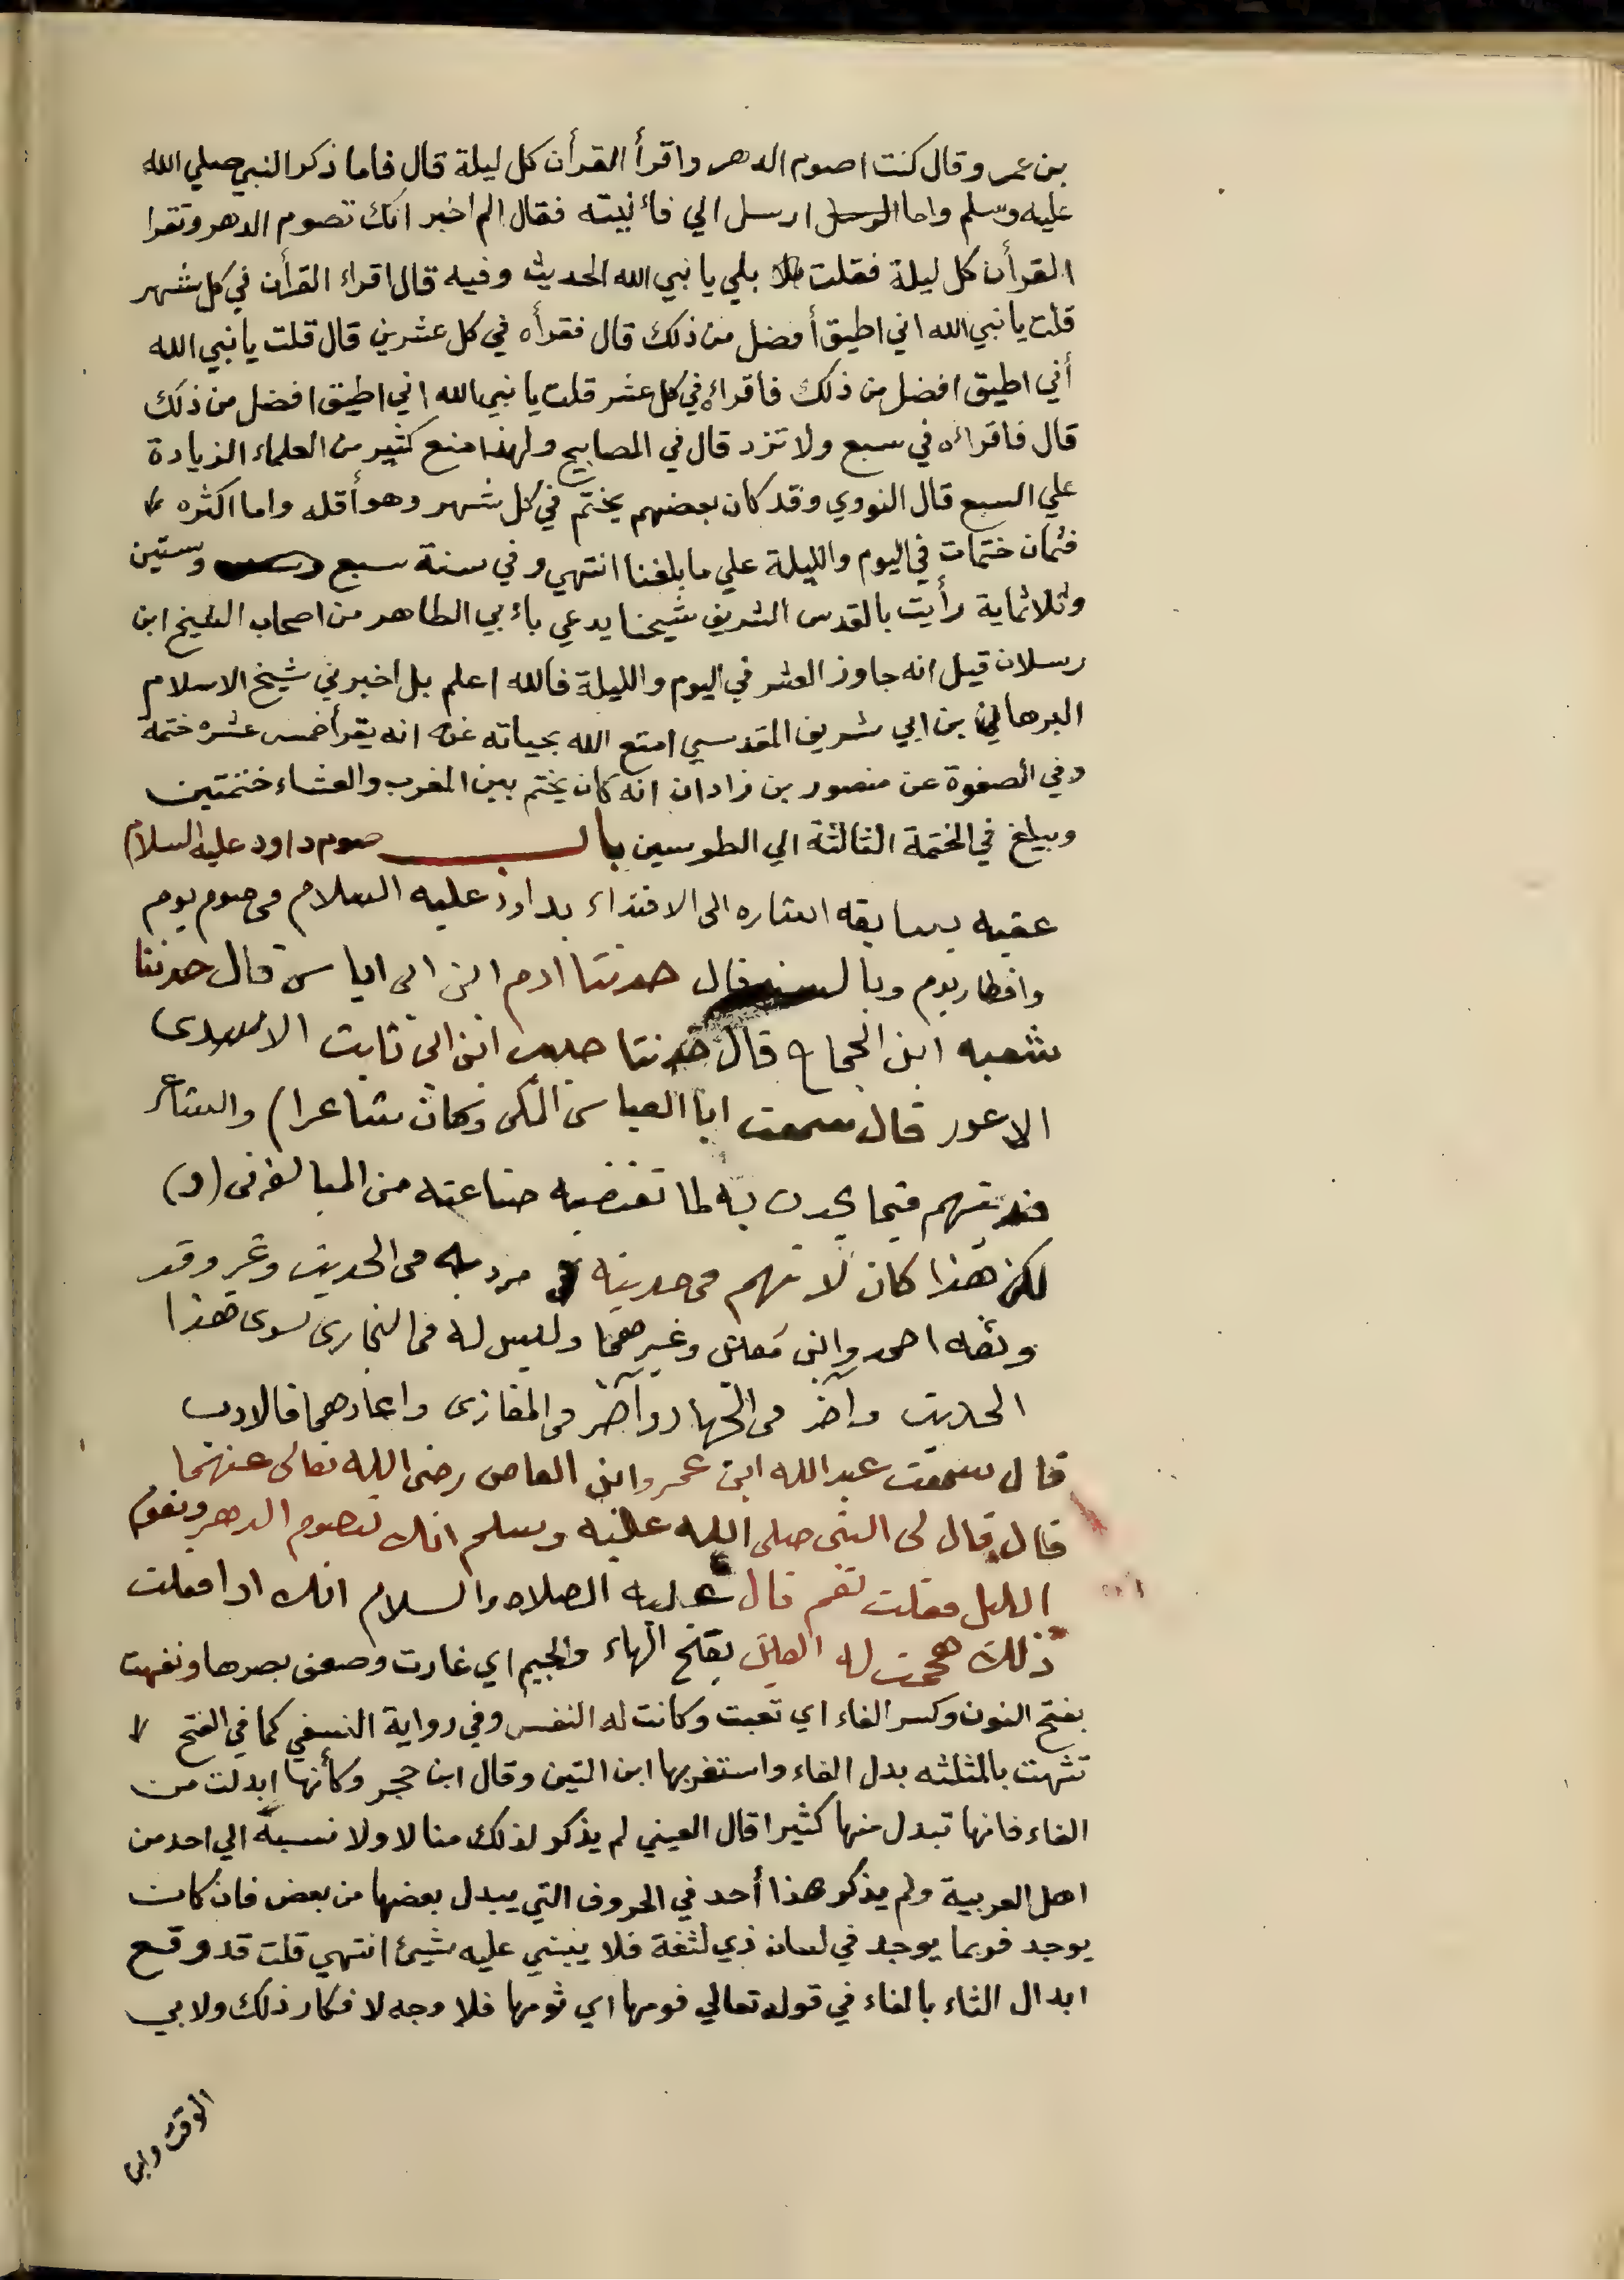 بن عمر وقال كنت اصوم الدهر واقرأ القرأن كل ليلة قال فاما ذكر النبي صلي الله
عليه وسلم واما ارسل الي فأتيته فقال الم اخبر انك تصوم الدهر وتقرا
القرأن كل ليلة فقلت بلي يا نبي الله الحديث وفيه قال اقراء القرأن في كل شهر
قلت يا نبي الله اني اطيق أفضل من ذلك قال فقرأه في كل عشرين قال قلت يا نبي الله
أني اطيق افضل من ذلك فاقراه في كل عشر قلت يا نبي الله اني اطيق افضل من ذلك
قال فاقراه في سبع ولا تزد قال في المصابيح ولهذا منع كثير من العلماء الزيادة
علي السبع قال النووي وقد كان بعضهم يختم في كل شهر وهو أقله واما اكثره
فثمان ختمات في اليوم والليلة علي ما بلغنا انتهي وفي سنة سبع وستين
وثلاثماية رأيت بالقدس الشريف شيخنا يدعي بأبي الطاهر من اصحاب الشيخ ابن
رسلان قيل انه جاوز العشر في اليوم والليلة فالله اعلم بل اخبرني شيخ الاسلام
البرهان بن ابي شريف المقدسي امتع الله بحياته عنه انه يقرأ خمس عشره ختمة
وفي الصفوة عن منصور بن زادان انه كان يختم بين المغرب والعشاء ختمتين
ويبلغ في الختمة الثالثة الي الطوسين باب صوم داود عليه السلام
عقبه بسابقه اشاره الى الاقتداء بداود عليه السلام فى صوم يوم
وافطار يوم وبالسند قال حدثنا ادم ابن ابى اياس قال حدثنا
شعبه ابن الحجاج قال حدثنا حبيب ابن ابى ثابت الاسدى
الاعور قال سمعت ابا العباس المكى وكان شاعرا) والشاعر
قد يتهم فيما يحدث به لما تقتضيه صناعته من المبالغه فى (و)
لكن هذا كان لا يتهم فى حديثه مرد به فى الحديث وغيره وقد
وثقه احمد وابن معين وغيرهما وليس له فى البخارى سوى هذا
الحديث وآخر فى الجهاد وآخر فى المغازى واعادهما فى الادب
قال سمعت عبد الله ابن عمرو ابن العاص رضى الله تعالى عنهما
قال قال لى النبى صلى الله عليه وسلم انك لتصوم الدهر وتقوم
الليل فقلت نعم قال عليه الصلاه والسلام انك اذا فعلت
ذلك هجمت له العين بفتح الهاء والجيم اي غارت وضعف بصرها ونفهت
بفتح النون وكسر الفاء اي تعبت وكانت له النفس وفي رواية النسفي كما في الفتح
تثهت بالمثلثه بدل الفاء واستغربها ابن التين وقال ابن حجر وكأنها ابدلت من
الفاء فانها تبدل منها كثيرا قال العيني لم يذكر لذلك مثالا ولا نسبة الي احد من
اهل العربية ولم يذكر هذا أحد في الحروف التي يبدل بعضها من بعض فان كان
يوجد فربما يوجد في لسان ذي لثغة فلا يبني عليه شيئ انتهي قلت قد وقع
ابدال الثاء بالفاء في قوله تعالي فومها اي ثومها فلا وجه لانكار ذلك ولابي
الوقت وابن